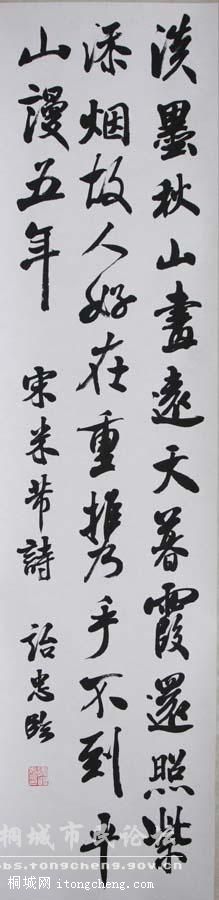 淡墨秋山畫遠天暮霞還照紫
添烟故人好在重攜手不到平
山謾五年
宋米芾詩
詒忠
桐城市民论坛
bbs.tongcheng.gov.cn
桐城网 itongcheng.com